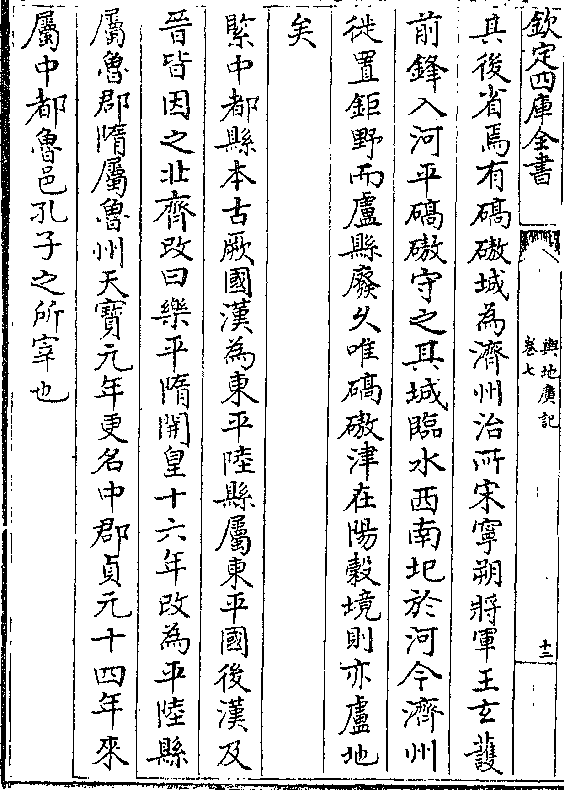 欽定四庫全書
輿地廣記
卷七
十三
其後省焉有碻磝城為濟州治所宋寧朔將軍王玄謨
前鋒入河平碻磝守之其城臨水西南圮於河今濟州
徙置鉅野而盧縣廢久唯碻磝津在陽穀境則亦盧地
矣
緊中都縣本古厥國漢為東平陸縣屬東平國後漢及
晉皆因之北齊改曰樂平隋開皇十六年改為平陸縣
屬魯郡隋屬魯州天寶元年更名中郡貞元十四年來
屬中都魯邑孔子之所宰也